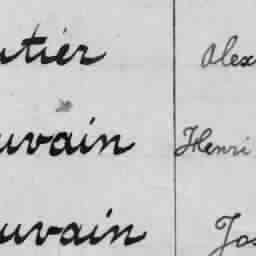 utier Alex
uvain Henri
uvain Jos